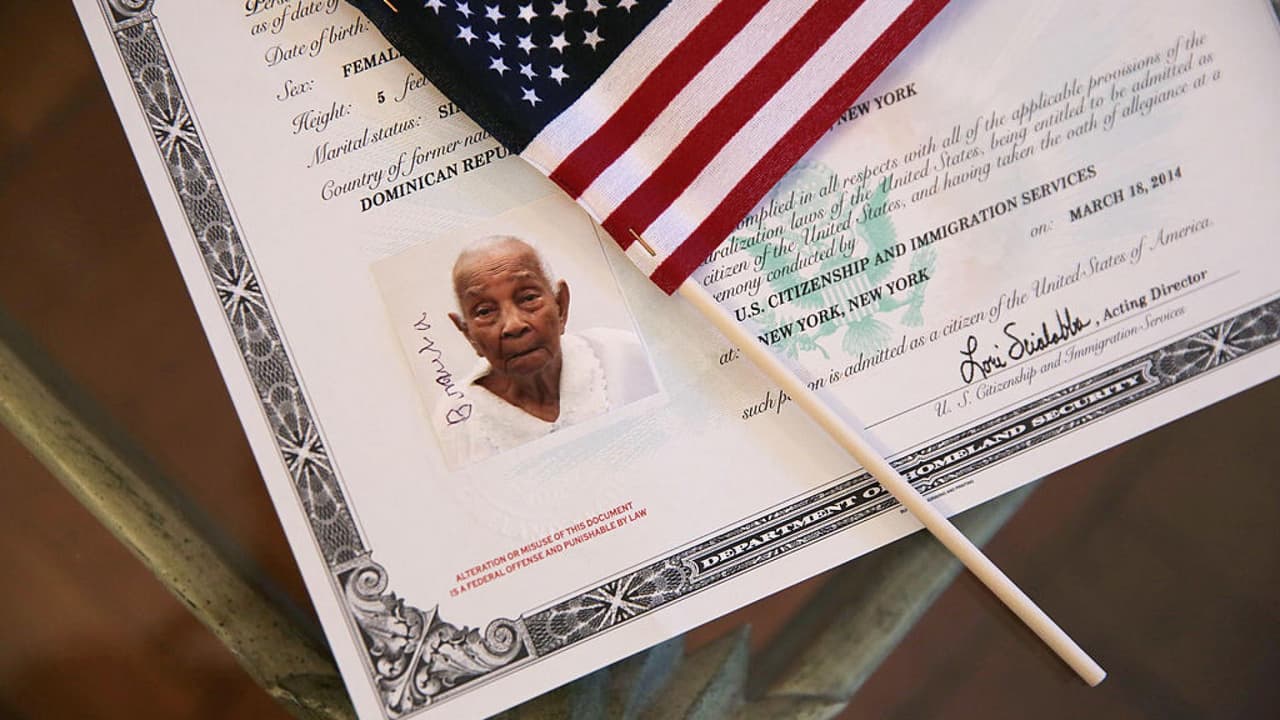 as of date of
Date of birth:
Sex: FEMALE
Height: 5 feet
Marital status:
Country of former
DOMINICAN
Braula
ALTERATION OR MISUSE OF THIS DOCUMENT
IS A FEDERAL OFFENSE AND PUNISHABLE BY LAW
NEW YORK
complied in all respects with all of the applicable provisions of the
laws of the United States, being entitled to be admitted as
citizen of the United States, and having taken the oath of allegiance at a
conducted by
U.S. CITIZENSHIP AND IMMIGRATION SERVICES
at: NEW YORK, NEW YORK on: MARCH 18, 2014
such person is admitted as a citizen of the United States of America.
Lori Scialabba, Acting Director
U. S. Citizenship and Immigration Services
DEPARTMENT OF HOMELAND SECURITY